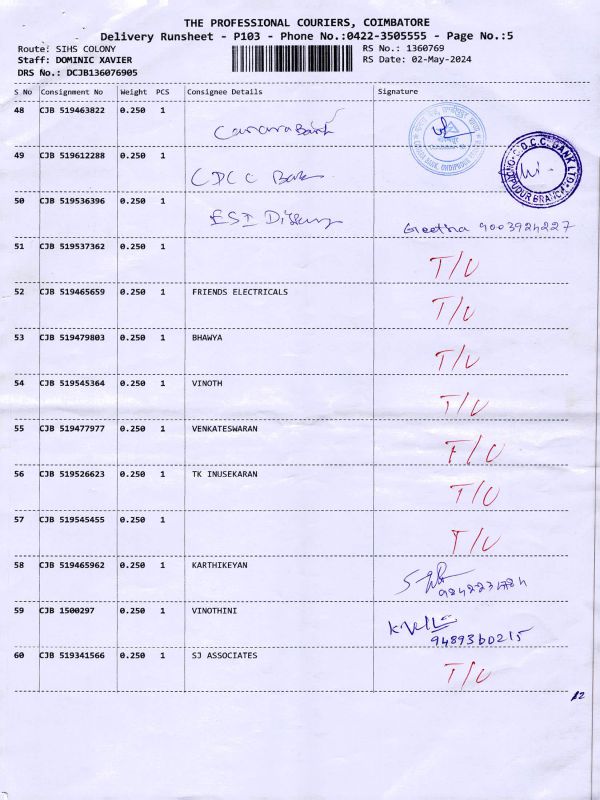 THE PROFESSIONAL COURIERS, COIMBATORE
Delivery Runsheet - P103 - Phone No.:0422-3505555 - Page No.:5
Route: SIHS COLONY
RS No.: 1360769
Staff: DOMINIC XAVIER
RS Date: 02-May-2024
DRS No.: DCJB136076905
S No Consignment No Weight PCS Consignee Details Signature
48 CJB 519463822 0.250 1 Canara Bank
49 CJB 519612288 0.250 1 CDCC Bank
50 CJB 519536396 0.250 1 ESI Geetha 9003924227
51 CJB 519537362 0.250 1 T/U
52 CJB 519465659 0.250 1 FRIENDS ELECTRICALS T/U
53 CJB 519479803 0.250 1 BHAWYA T/U
54 CJB 519545364 0.250 1 VINOTH T/U
55 CJB 519477977 0.250 1 VENKATESWARAN T/U
56 CJB 519526623 0.250 1 TK INUSEKARAN T/U
57 CJB 519545455 0.250 1 T/U
58 CJB 519465962 0.250 1 KARTHIKEYAN
59 CJB 1500297 0.250 1 VINOTHINI 9489360215
60 CJB 519341566 0.250 1 SJ ASSOCIATES T/U